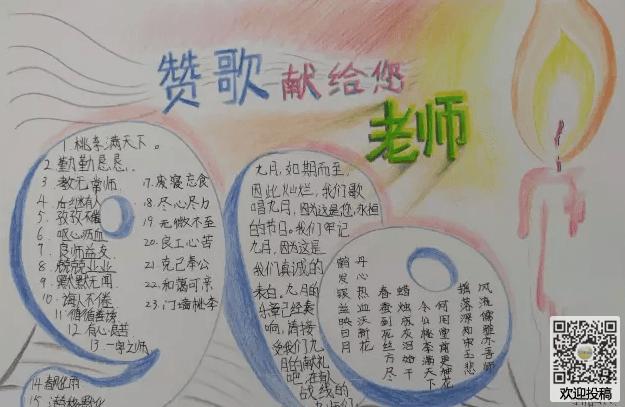 赞歌献给您
老师
1.桃李满天下。
2.勤勤恳恳.
3.教无常师
4.后继有人
5.孜孜不倦
6.呕心沥血
7.良师益友
8.兢兢业业
9.默默无闻
10.诲人不倦
11.循循善诱
12.有心良苦
13.一字之师
14.春化雨
15.
17.废寝忘食
18.尽心尽力
19.无微不至
20.良工心苦
21.克己奉公
22.和蔼可亲
23.门墙桃李
九月,如期而至,
因此灿烂,我们歌
唱九月,因为这是您,永恒
的节日。我们牢记
九月,因为这是
我们真诚的
表白,九月的
乐章已经奏
响,请接
受我们九
月的献礼
吧,在
战线的
丹心热血沃新花
鹤发银丝映日月
蜡炬成灰泪始干
春蚕到死丝方尽
今日桃李满天下
何用堂前更种花
风流儒雅亦吾师
摇落深知宋玉悲
欢迎投稿